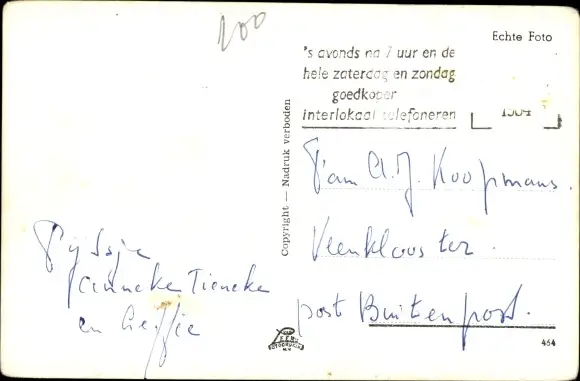 100
Echte Foto
's avonds na 7 uur en de
hele zaterdag en zondag
goedkoper
interlokaal telefoneren
1964
Copyright — Nadruk verboden
Fam A.J. Koopmans.
Veenklooster.
post Buitenpost.
Janneke Tieneke
en
464